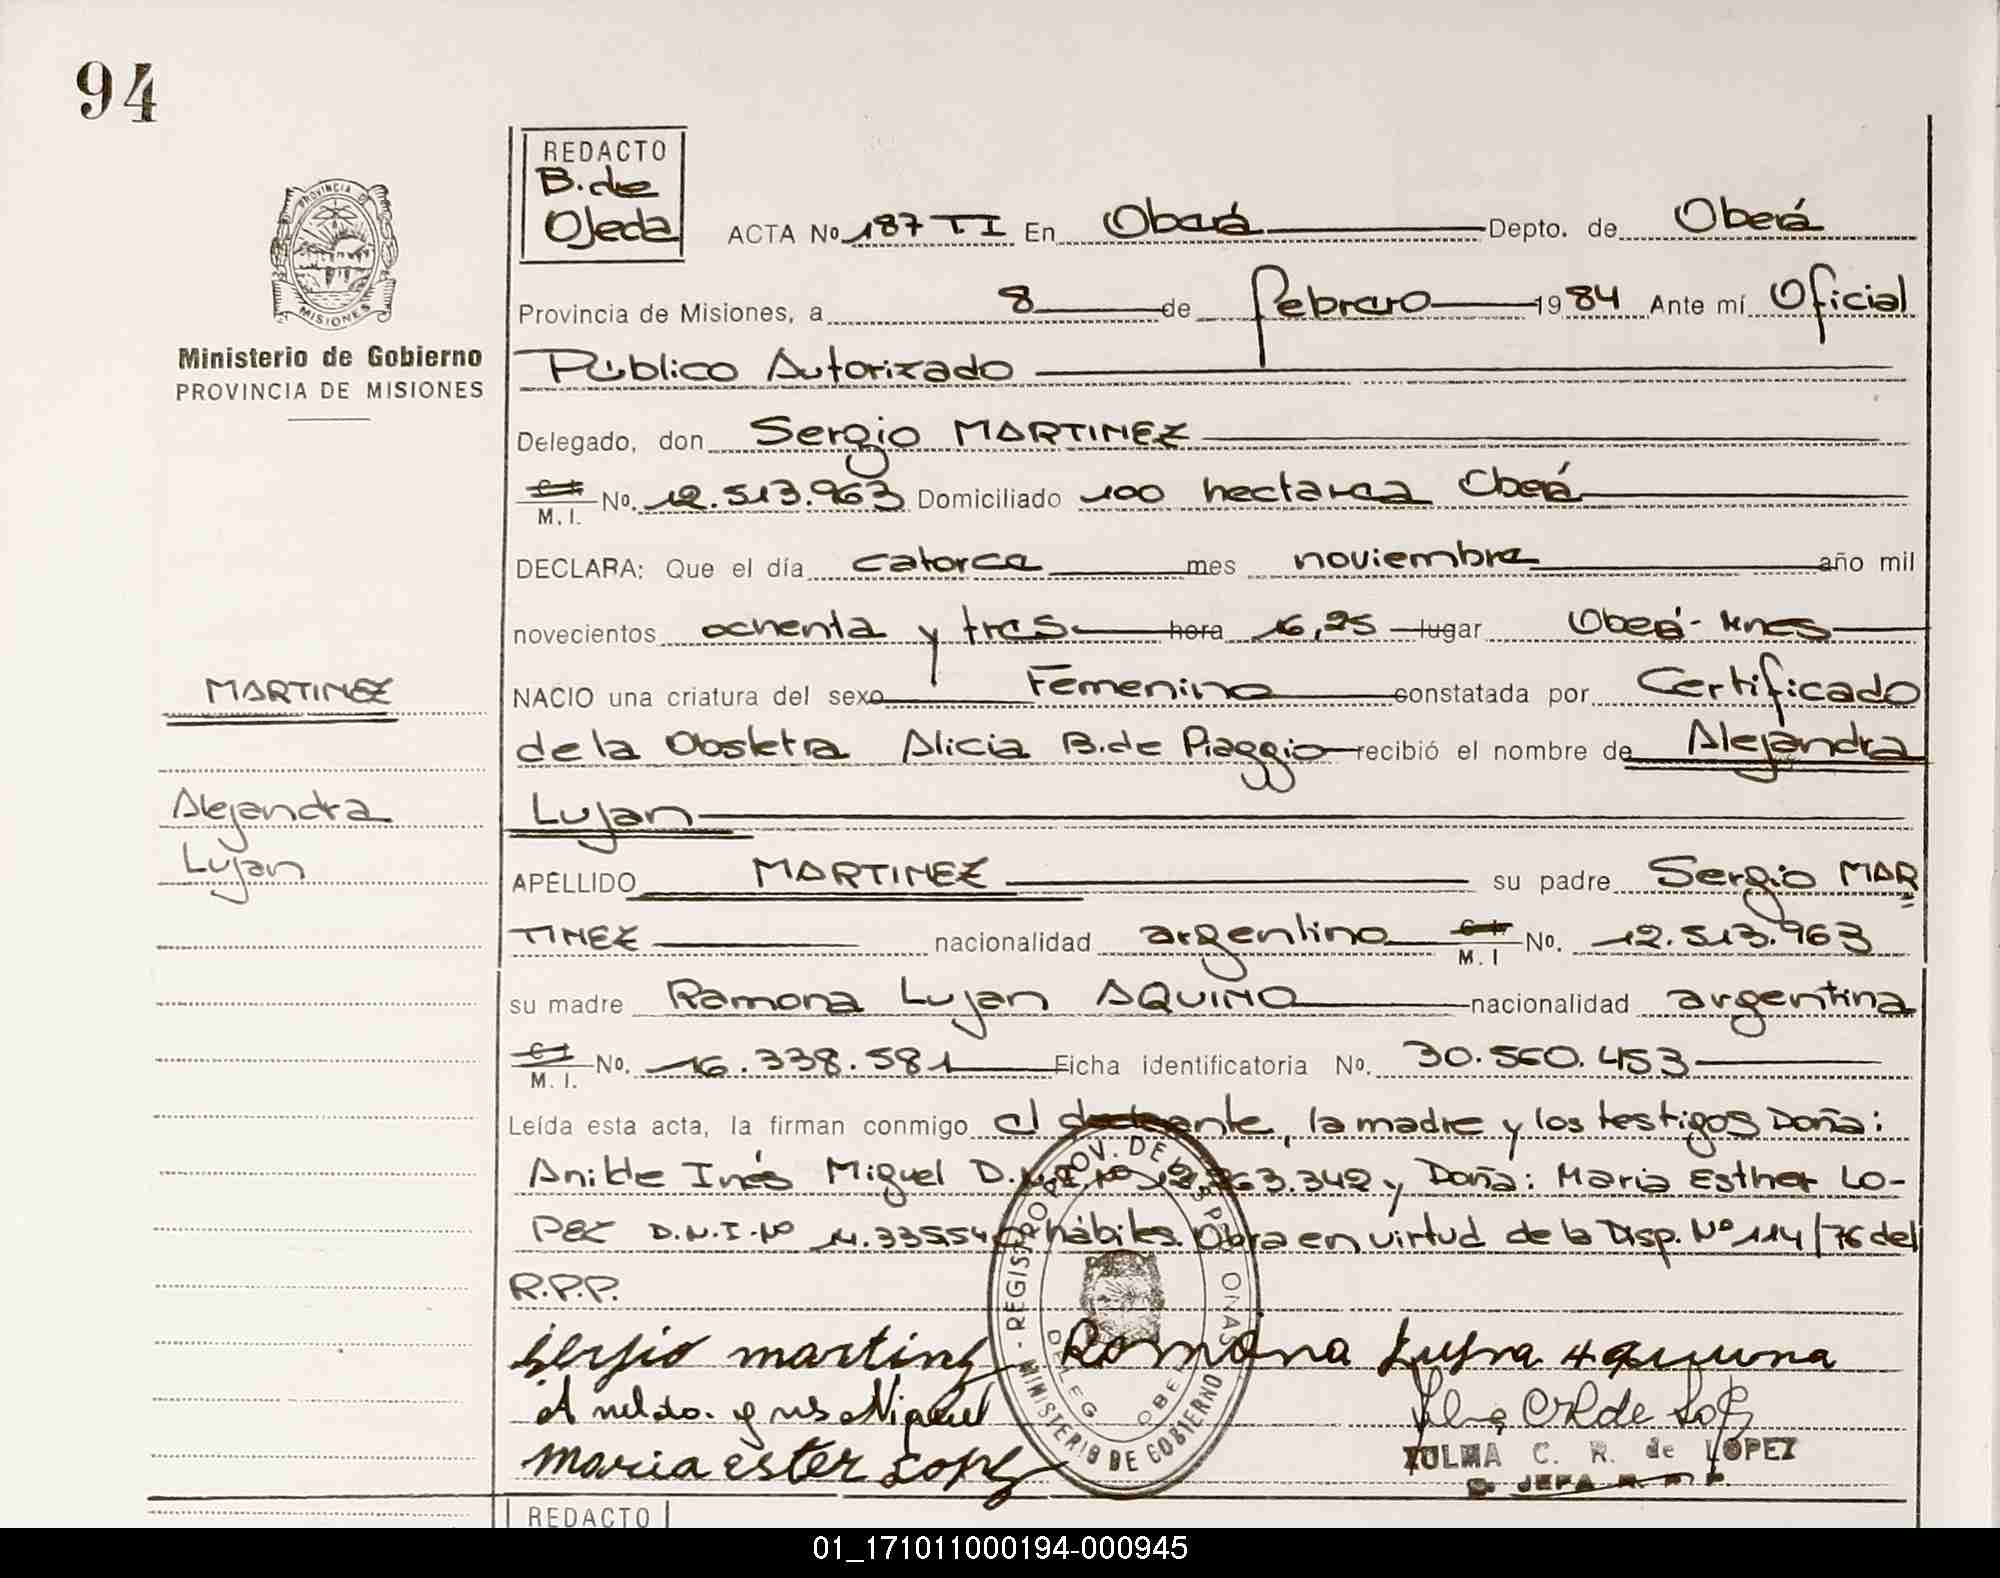 94
REDACTO
B. de
Ojeda
ACTA No 187 TI En Oberá Depto. de Oberá
PROVINCIA DE
MISIONES
Provincia de Misiones, a 8 de febrero 1984 Ante mí Oficial
Ministerio de Gobierno
PROVINCIA DE MISIONES
Público Autorizado
Delegado, don Sergio MARTINEZ
C I
M. I. No. 12.513.963 Domiciliado 100 hectarea Oberá
DECLARA: Que el día catorce mes noviembre año mil
novecientos ochenta y tres hora 16,25 lugar Oberá - Mnes
MARTINEZ
NACIO una criatura del sexo Femenino constatada por Certificado
de la Obstetra Alicia B. de Piaggio recibió el nombre de Alejandra
Alejandra
Lujan
Lujan
APELLIDO MARTINEZ su padre Sergio MAR
TINEZ nacionalidad argentino C I M. I No. 12.513.963
su madre Ramona Lujan AQUINO nacionalidad argentina
C I
M. I. No. 16.338.581 Ficha identificatoria No. 30.560.453
Leída esta acta, la firman conmigo el , la madre y los testigos Doña:
Inés Miguel D.N.I. Nº y Doña: Maria Esther LO-
PEZ D.N.I. Nº hábiles. Obra en virtud de la Disp. Nº 114/76 del
R.P.P.
Sergio martinez Ramona Lujna Aquuna
Miguel
maria ester Lopez
ZULMA C. R. de LOPEZ
JEFA
REGISTRO PROV. DE LAS PERSONAS
DELEG OBERA
MINISTERIO DE GOBIERNO
REDACTO
01_171011000194-000945